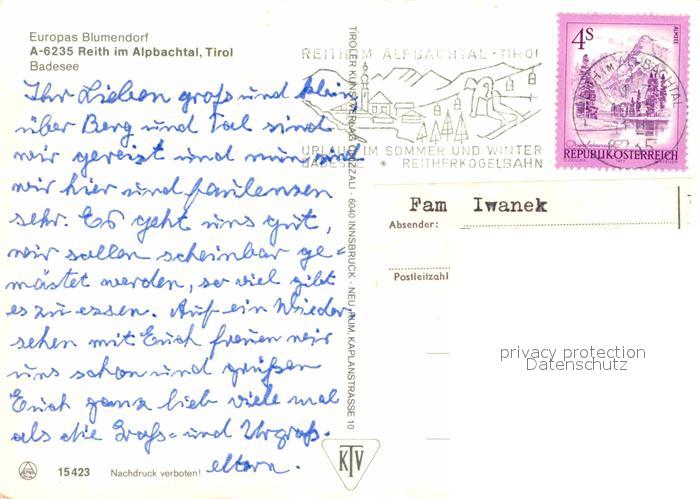 Europas Blumendorf
A-6235 Reith im Alpbachtal, Tirol
Badesee
Ihr Lieben groß und klein
über Berg und Tal sind
wir gereist und nun sind
wir hier und faulenzen
sehr. Es geht uns gut,
wir sollen scheinbar ge-
mästet werden, so viel gibt
es zu essen. Auf ein Wieder-
sehen mit Euch freuen wir
uns schon und grüßen
Euch ganz lieb viele mal
als die Groß- und Urgroß-
eltern.
15423 Nachdruck verboten!
TIROLER KUNSTVERLAG CHIZZALI · 6040 INNSBRUCK - NEU-RUM, KAPLANSTRASSE 10
KTV
REITH IM ALPBACHTAL · TIROL
URLAUB IM SOMMER UND WINTER
BADESEE * REITHERKOGELBAHN
4S
ALMSEE
REPUBLIK ÖSTERREICH
REITH IM ALPBACHTAL
Fam Iwanek
Absender:
Postleitzahl
privacy protection
Datenschutz